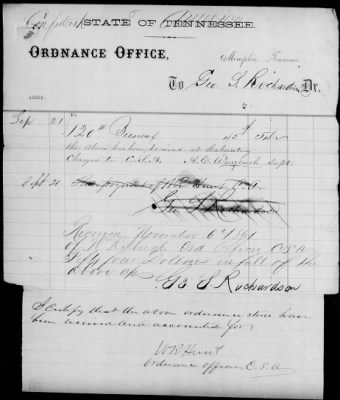 STATE OF TENNESSEE.
ORDNANCE OFFICE,
Memphis, Tennessee
To Geo S. Richardson Dr.
1861.
Sep 21 120 # Beeswax 45¢
the above has been received at Laboratory
Charged to C.S.A.
Sept 21
Received November 6th 1861
of W R Hunt Ord Officer C.S.A
Fifty four Dollars in full of the
above a/c
Geo S. Richardson
I certify that the above ordnance stores have
been received and accounted for
W R Hunt
Ordnance officer C.S.A